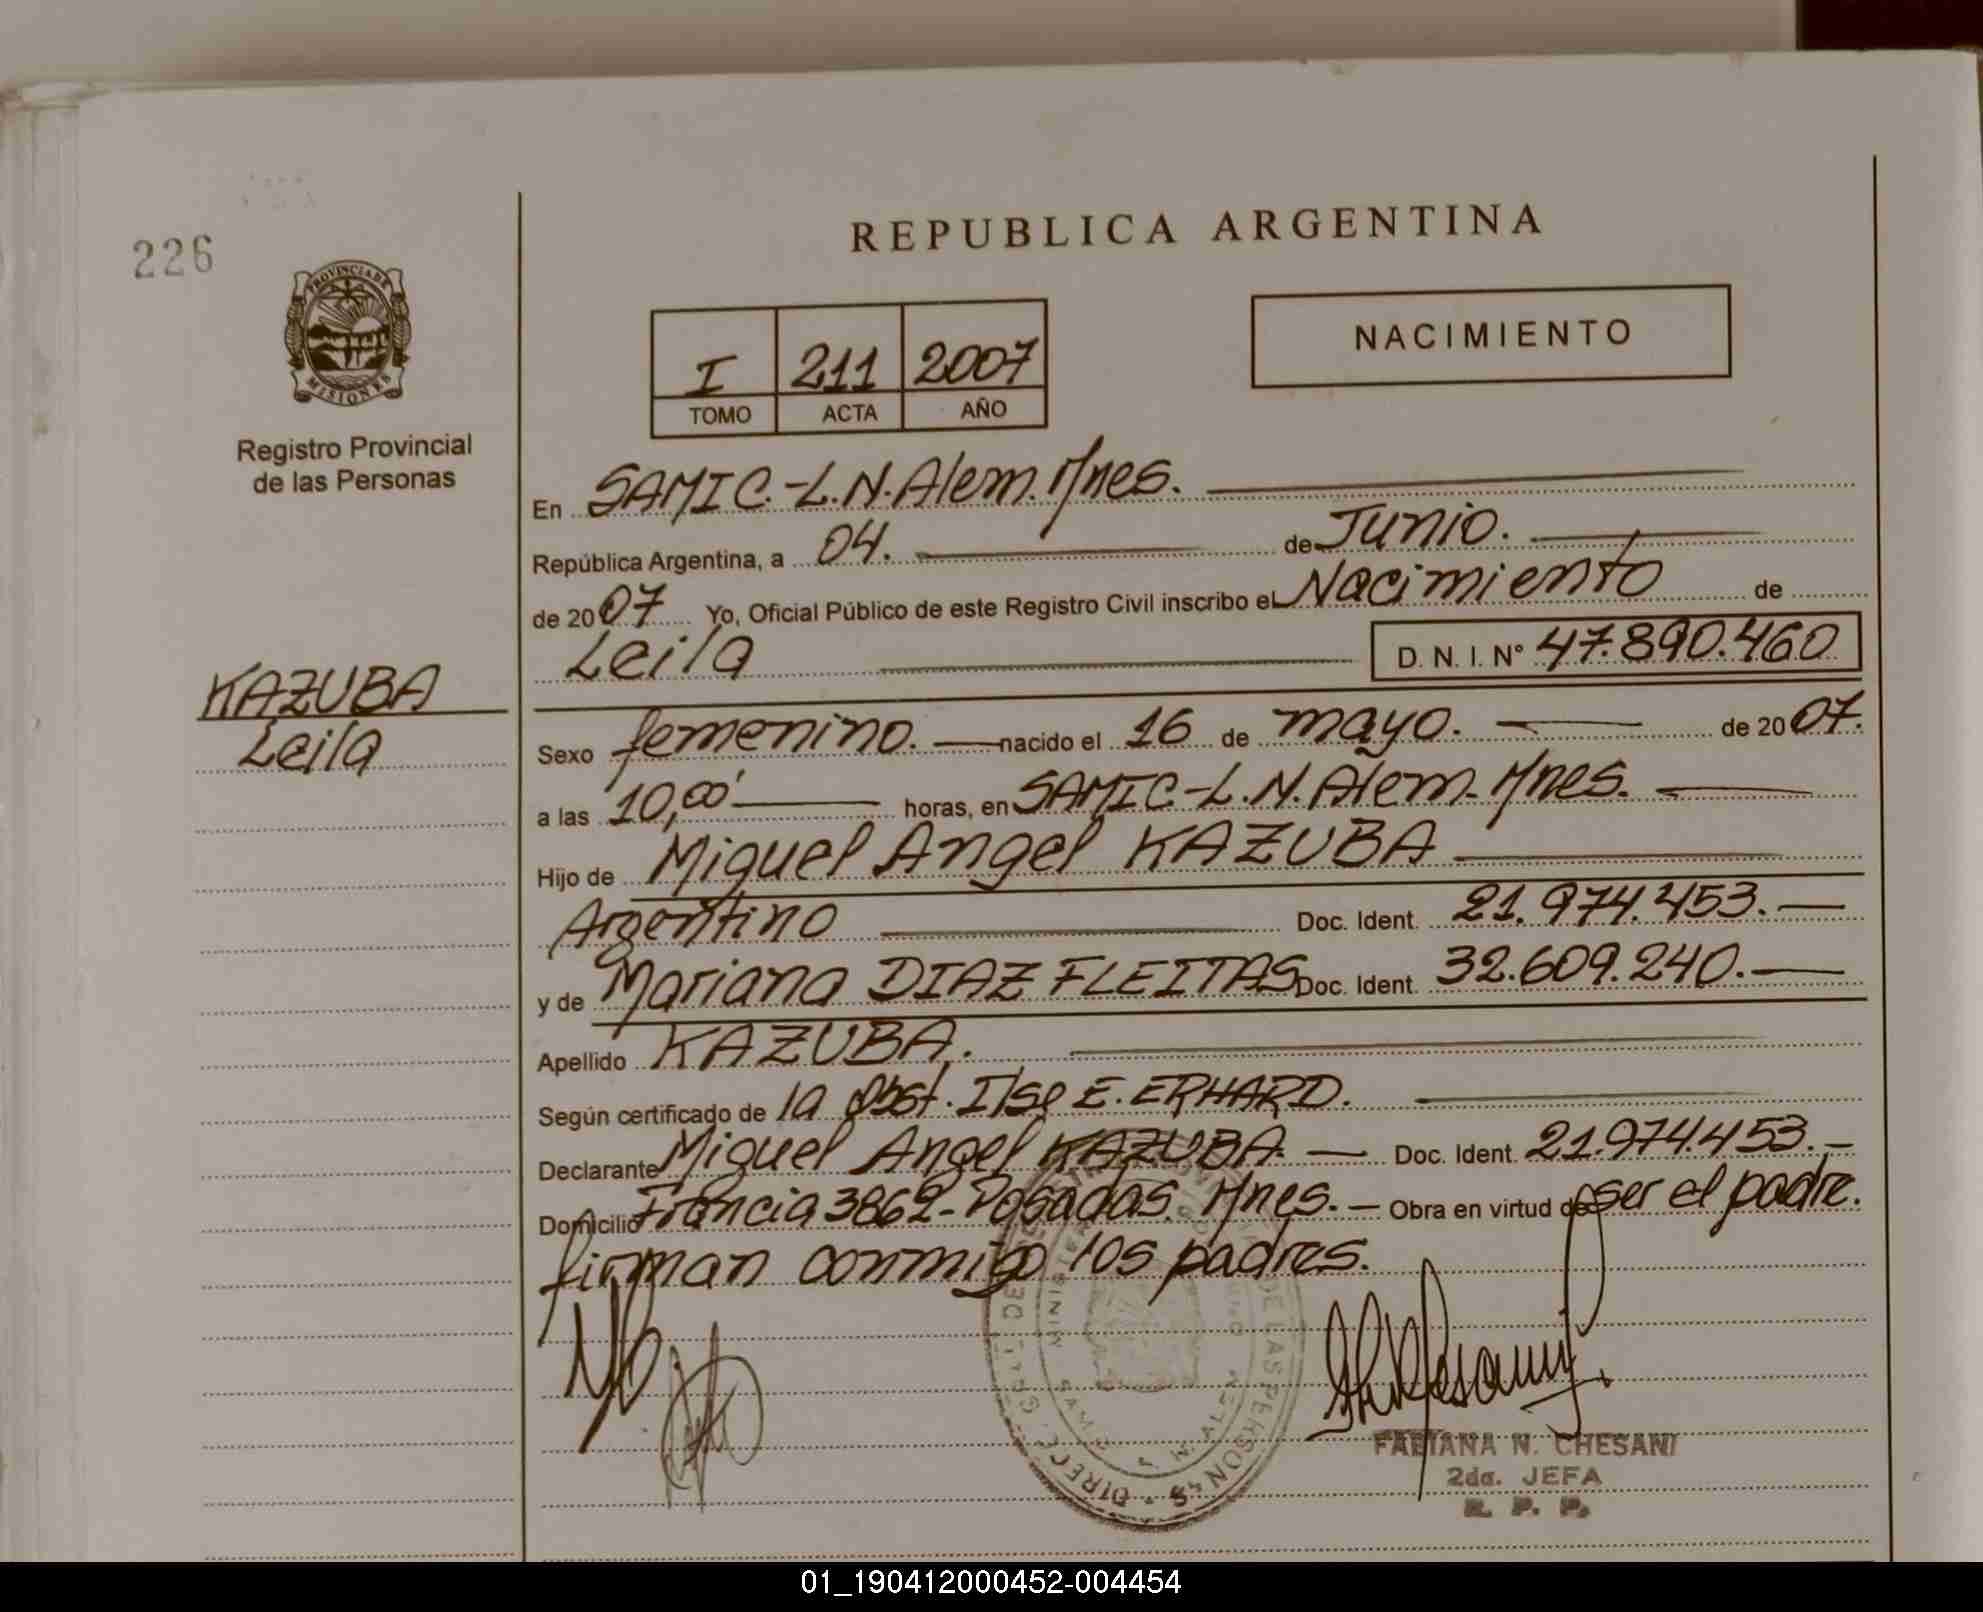 226
PROVINCIA DE
MISIONES
Registro Provincial
de las Personas
KAZUBA
Leila
REPUBLICA ARGENTINA
I 211 2007
TOMO ACTA AÑO
NACIMIENTO
En SAMIC.-L.N.Alem.Mnes.
República Argentina, a 04. de Junio.
de 2007 Yo, Oficial Público de este Registro Civil inscribo el Nacimiento de
Leila D. N. I. Nº 47.890.460
Sexo femenino. nacido el 16 de mayo. de 2007.
a las 10,00' horas, en SAMIC-L.N.Alem.Mnes.
Hijo de Miguel Angel KAZUBA
Argentino Doc. Ident. 21.974.453.
y de Mariana DIAZ FLEITAS Doc. Ident. 32.609.240.
Apellido KAZUBA.
Según certificado de la Obst. Ilse E. ERHARD.
Declarante Miguel Angel KAZUBA. Doc. Ident. 21.974.453.
Domicilio Francia 3862-Posadas. Mnes. Obra en virtud de ser el padre.
firman conmigo los padres.
DE LAS PERSONAS
FABIANA N. CHESANI
2da. JEFA
R. P. P.
01_190412000452-004454